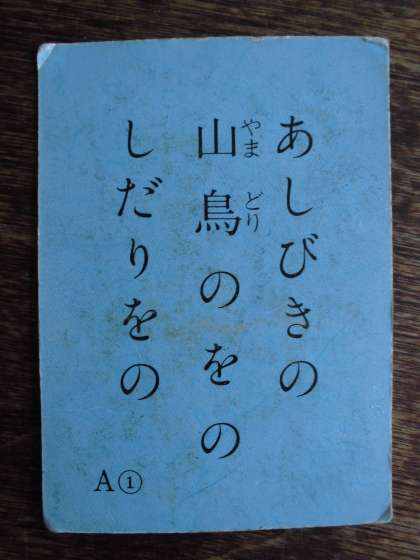 あしびきの
山鳥のをの
やま どり
しだりをの
A①